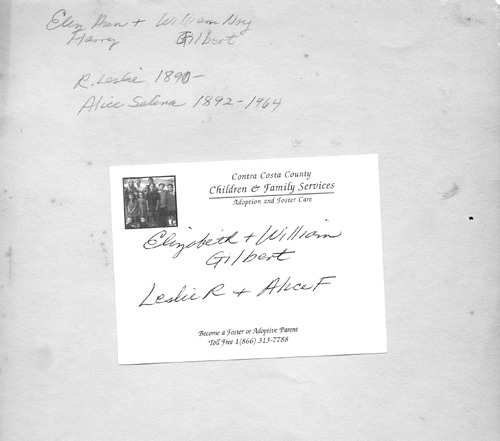 Elen Ann + William
Harry Gilbert
R. Leslie 1890-
Alice Selena 1892-1964
Contra Costa County
Children & Family Services
Adoption and Foster Care
Elizabeth + William
Gilbert
Leslie R + Alice F
Become a Foster or Adoptive Parent
Toll Free 1(866) 313-7788